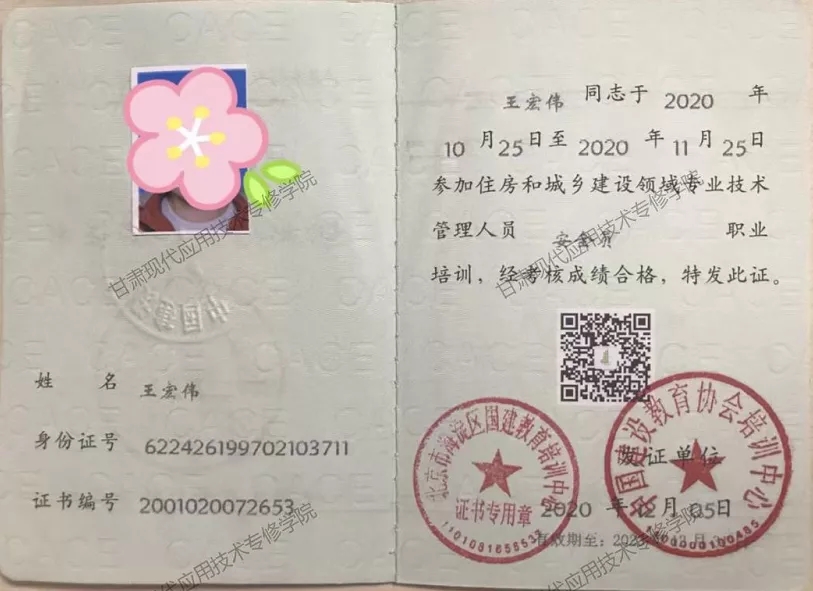 甘肃现代应用技术专修学院
姓 名 王宏伟
身份证号 622426199702103711
证书编号 2001020072653
甘肃现代应用技术专修学院
王宏伟 同志于 2020 年
10 月 25 日至 2020 年 11 月 25 日
参加住房和城乡建设领域专业技术
管理人员 安全员 职业
培训，经考核成绩合格，特发此证。
甘肃现代应用技术专修学院
北京市海淀区国建教育培训中心
证书专用章
中国建设教育协会培训中心
发证单位
2020 年 12 月 05 日
有效期至：
甘肃现代应用技术专修学院